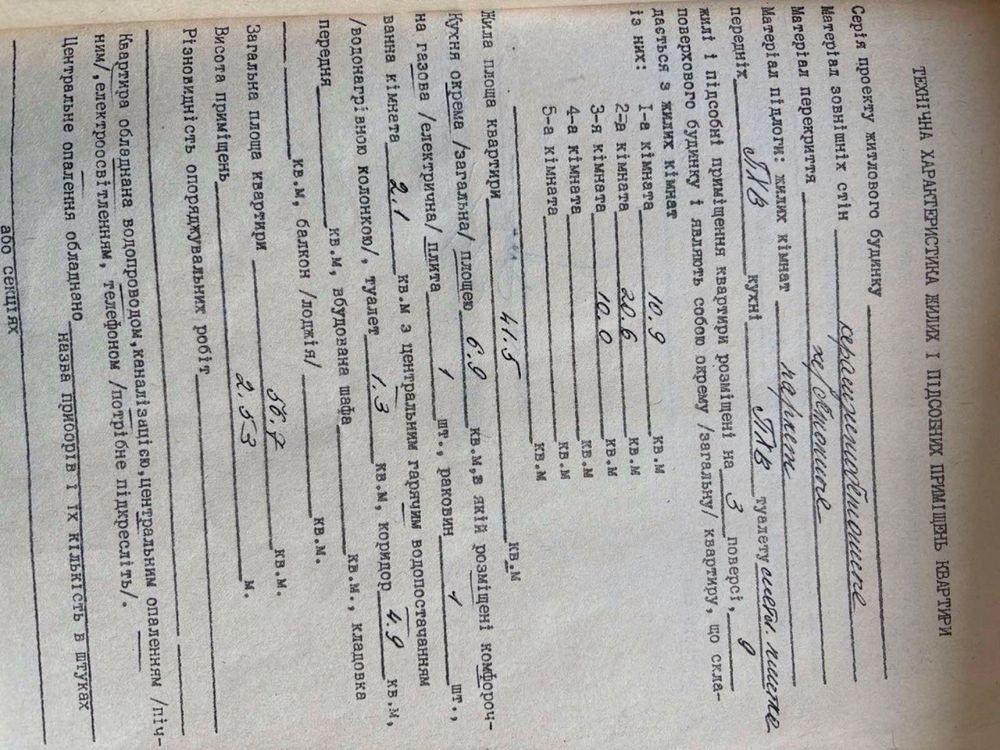 ТЕХНІЧНА ХАРАКТЕРИСТИКА ЖИЛИХ І ПІДСОБНИХ ПРИМІЩЕНЬ КВАРТИРИ
Серія проекту житлового будинку
Матеріал зовнішніх стін керамзитобетонне
Матеріал перекриття ж/бетонне
Матеріал підлоги: жилих кімнат паркет
передніх ПХВ кухні ПХВ туалету плитка
жилі і підсобні приміщення квартири розміщені на 3 поверсі, 9
поверхового будинку і являють собою окрему /загальну/ квартиру, що скла-
дається з жилих кімнат
із них:
І-а кімната 10.9 кв.м
2-а кімната 20.6 кв.м
3-я кімната 10.0 кв.м
4-а кімната кв.м
5-а кімната кв.м
Жила площа квартири 41.5 кв.м
Кухня окрема /загальна/ площею 6.9 кв.м,в якій розміщені комфороч-
на газова /електрична/ плита 1 шт., раковин 1 шт.,
ванна кімната 2.1 кв.м з центральним гарячим водопостачанням
/водонагрівною колонкою/, туалет 1.3 кв.м, коридор 4.9 кв.м,
передня кв.м, вбудована шафа кв.м., кладовка
кв.м, балкон /лоджія/ кв.м.
Загальна площа квартири 56.7 кв.м.
Висота приміщень 2.53 м.
Різновидність опоряджувальних робіт
Квартира обладнана водопроводом,каналізацією,центральним опаленням /піч-
ним/,електроосвітленням, телефоном /потрібне підкресліть/.
Центральне опалення обладнано назва приборів і їх кількість в штуках
або секціях